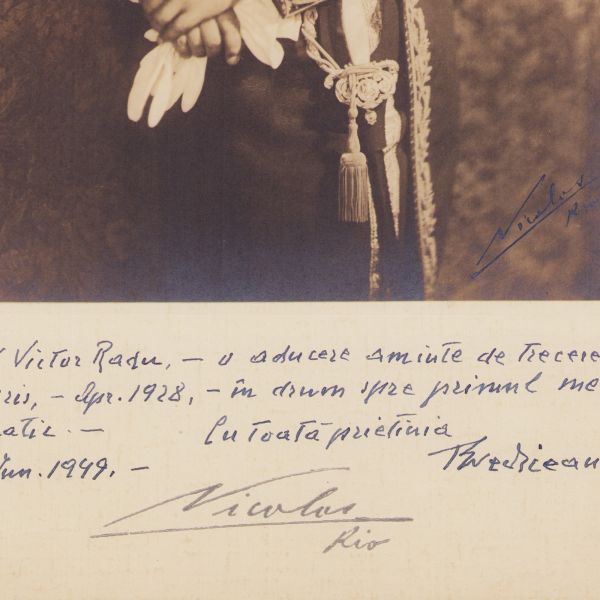 Nicolas
Rio
Victor Radu, – o aducere aminte de trecere
ris, – Apr. 1928, – în drum spre primul
– Cu toată prietinia
1949. –
Nicolas
Rio